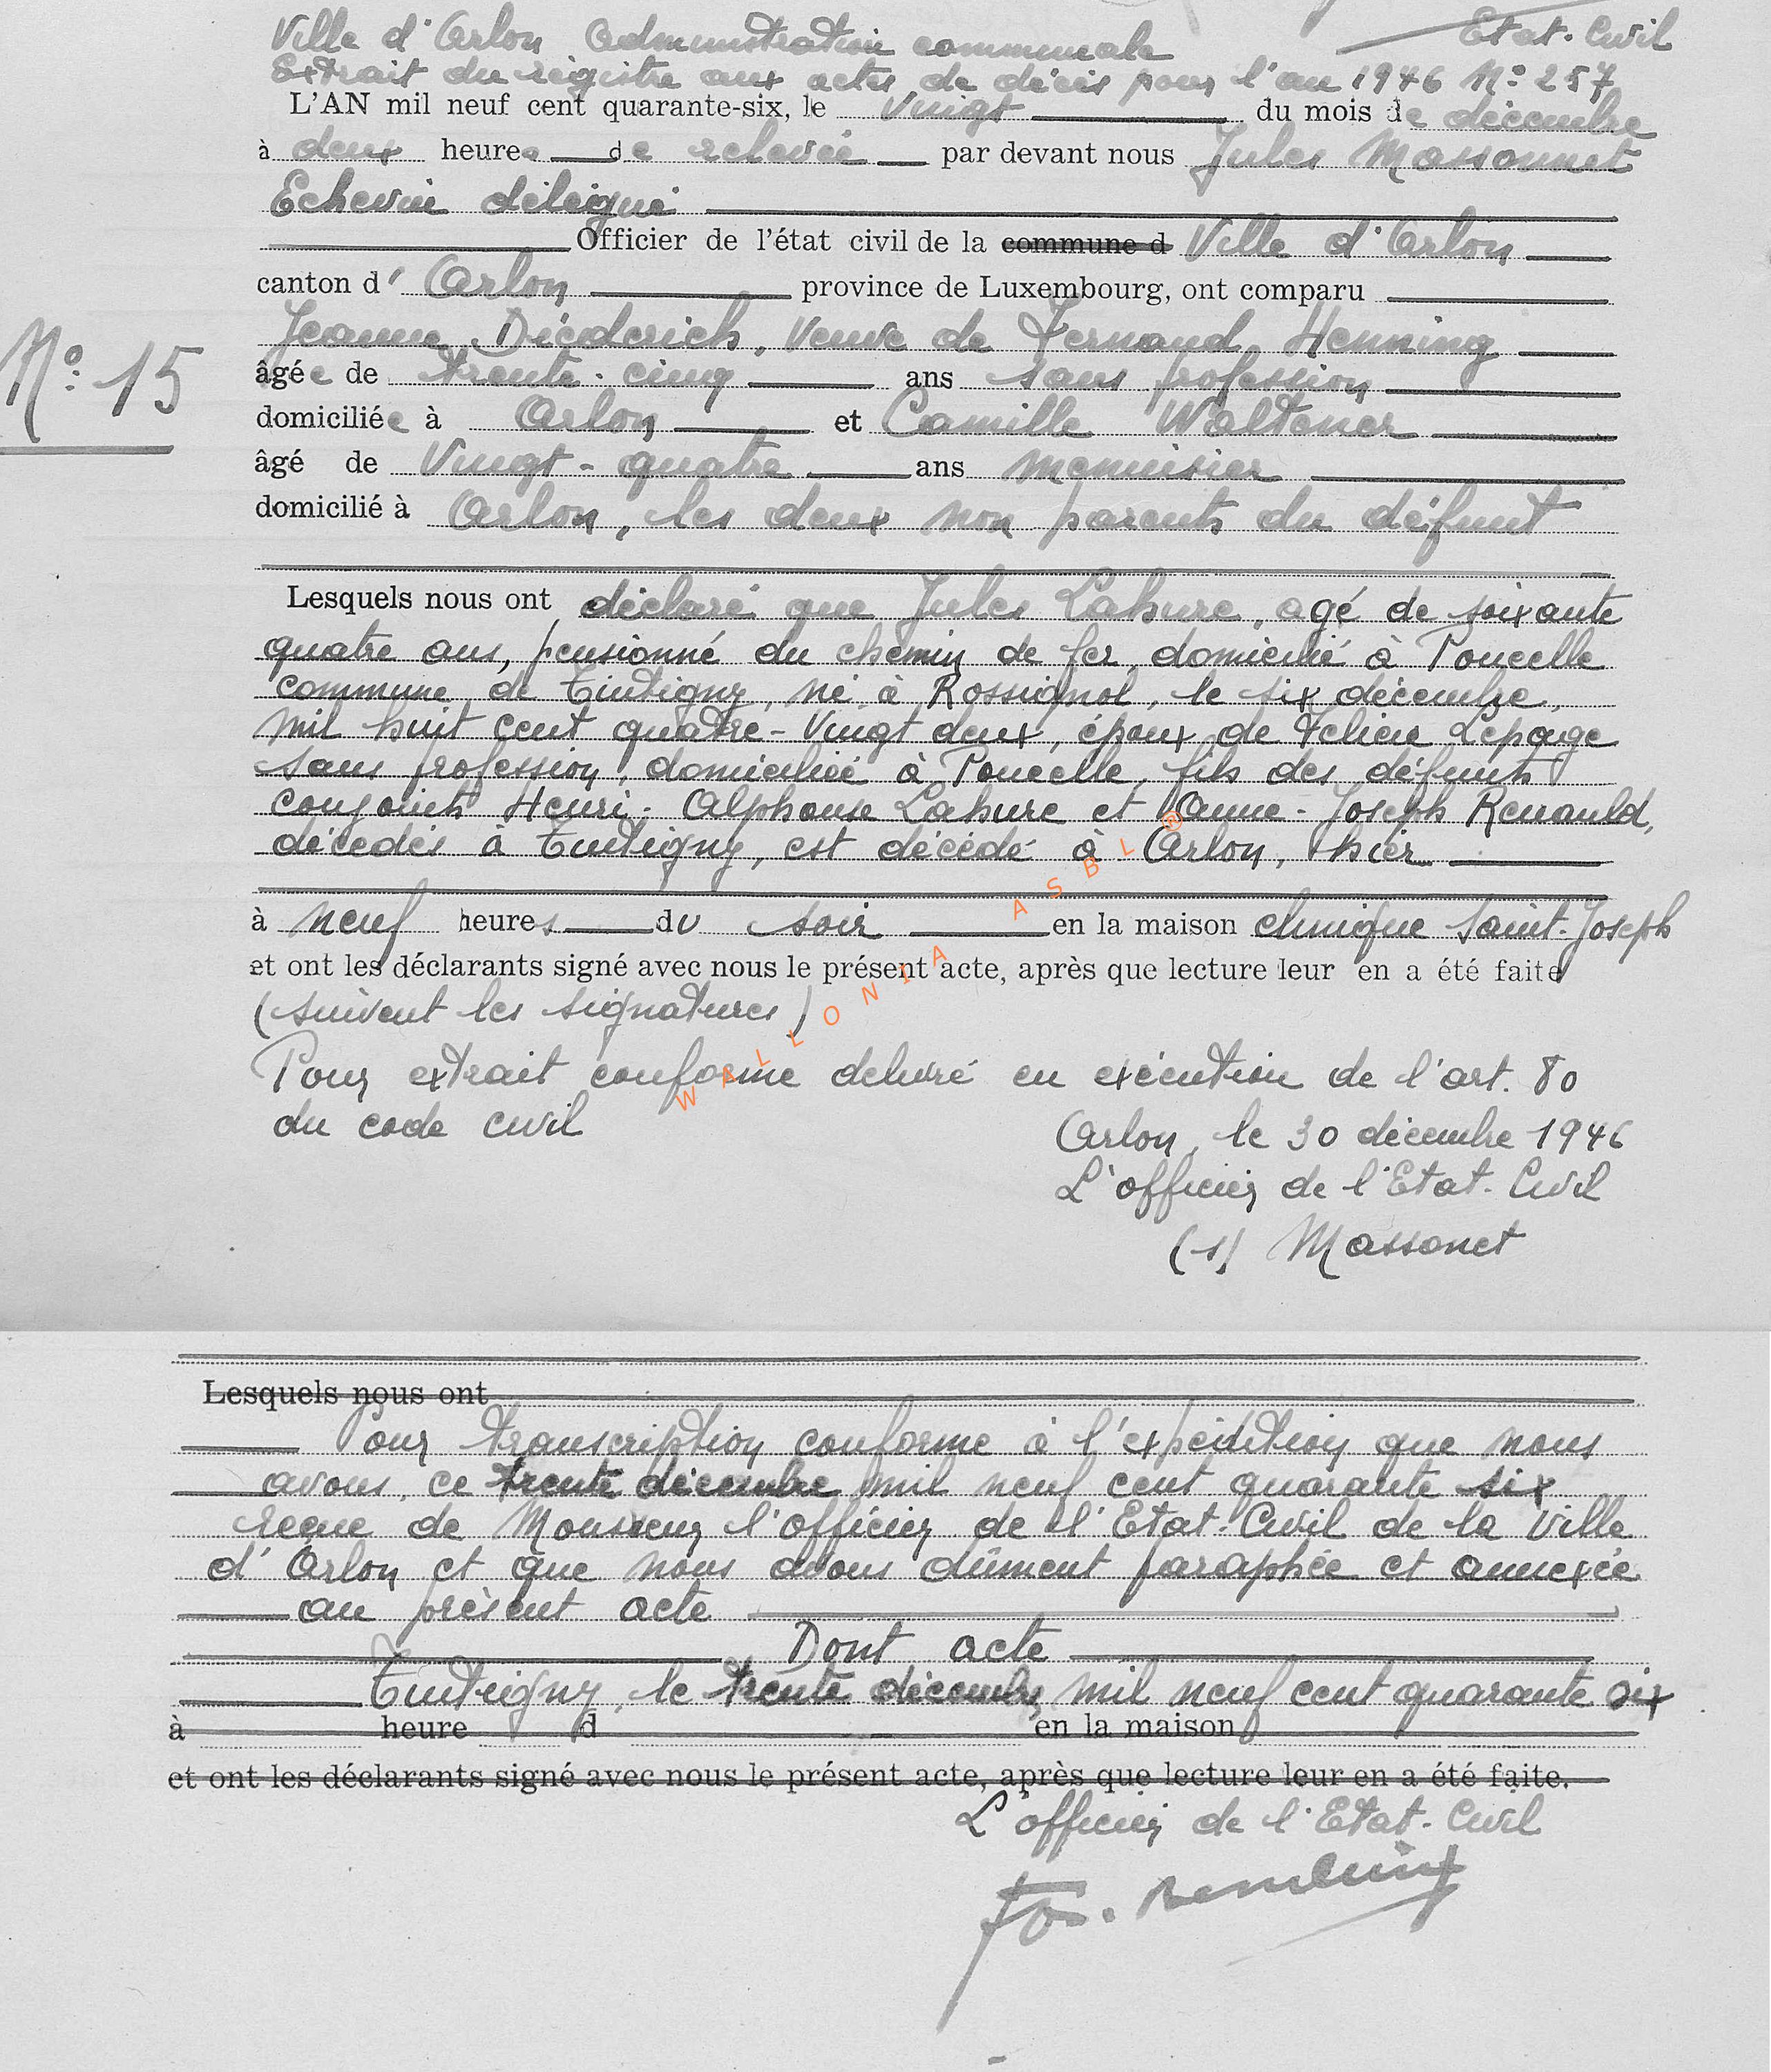 Ville d'Arlon Administration communale Etat-Civil
Extrait du registre aux actes de décès pour l'an 1946 N° 257
L'AN mil neuf cent quarante-six, le vingt du mois de décembre
à deux heures de relevée par devant nous Jules Massonnet
Echevin délégué
Officier de l'état civil de la commune d Ville d'Arlon
canton d' Arlon province de Luxembourg, ont comparu
Jeanne Diederich, Veuve de Fernand Henning
N° 15
âgée de trente-cinq ans sans profession
domiciliée à Arlon et Camille Waltener
âgé de Vingt-quatre ans menuisier
domicilié à Arlon, les deux non parents du défunt
Lesquels nous ont déclaré que Jules Lahure, agé de soixante
quatre ans, pensionné du chemin de fer, domicilié à Poncelle
commune de Tintigny, né à Rossignol, le six décembre,
mil huit cent quatre-Vingt deux, époux de Félicie Lepage
sans profession, domiciliée à Poncelle, fils des défunts
conjoints Henri-Alphonse Lahure et Anne-Joseph Renauld,
décédés à Tintigny, est décédé à Arlon, hier
à neuf heures du soir en la maison clinique Saint-Joseph
et ont les déclarants signé avec nous le présent acte, après que lecture leur en a été faite
(suivent les signatures)
Pour extrait conforme délivré en exécution de l'art. 80
du code civil
Arlon, le 30 décembre 1946
L'officier de l'Etat-Civil
(s) Massonet
WALLONIA ASBL ®
Lesquels nous ont
Pour transcription conforme à l'expédition que nous
avons, ce trente décembre mil neuf cent quarante six
reçue de Monsieur l'officier de l'Etat-Civil de la Ville
d'Arlon et que nous avons dûment paraphée et annexée
au présent acte
Dont acte
Tintigny, le trente décembre mil neuf cent quarante six
à heure d en la maison
et ont les déclarants signé avec nous le présent acte, après que lecture leur en a été faite.
L'officier de l'Etat-Civil